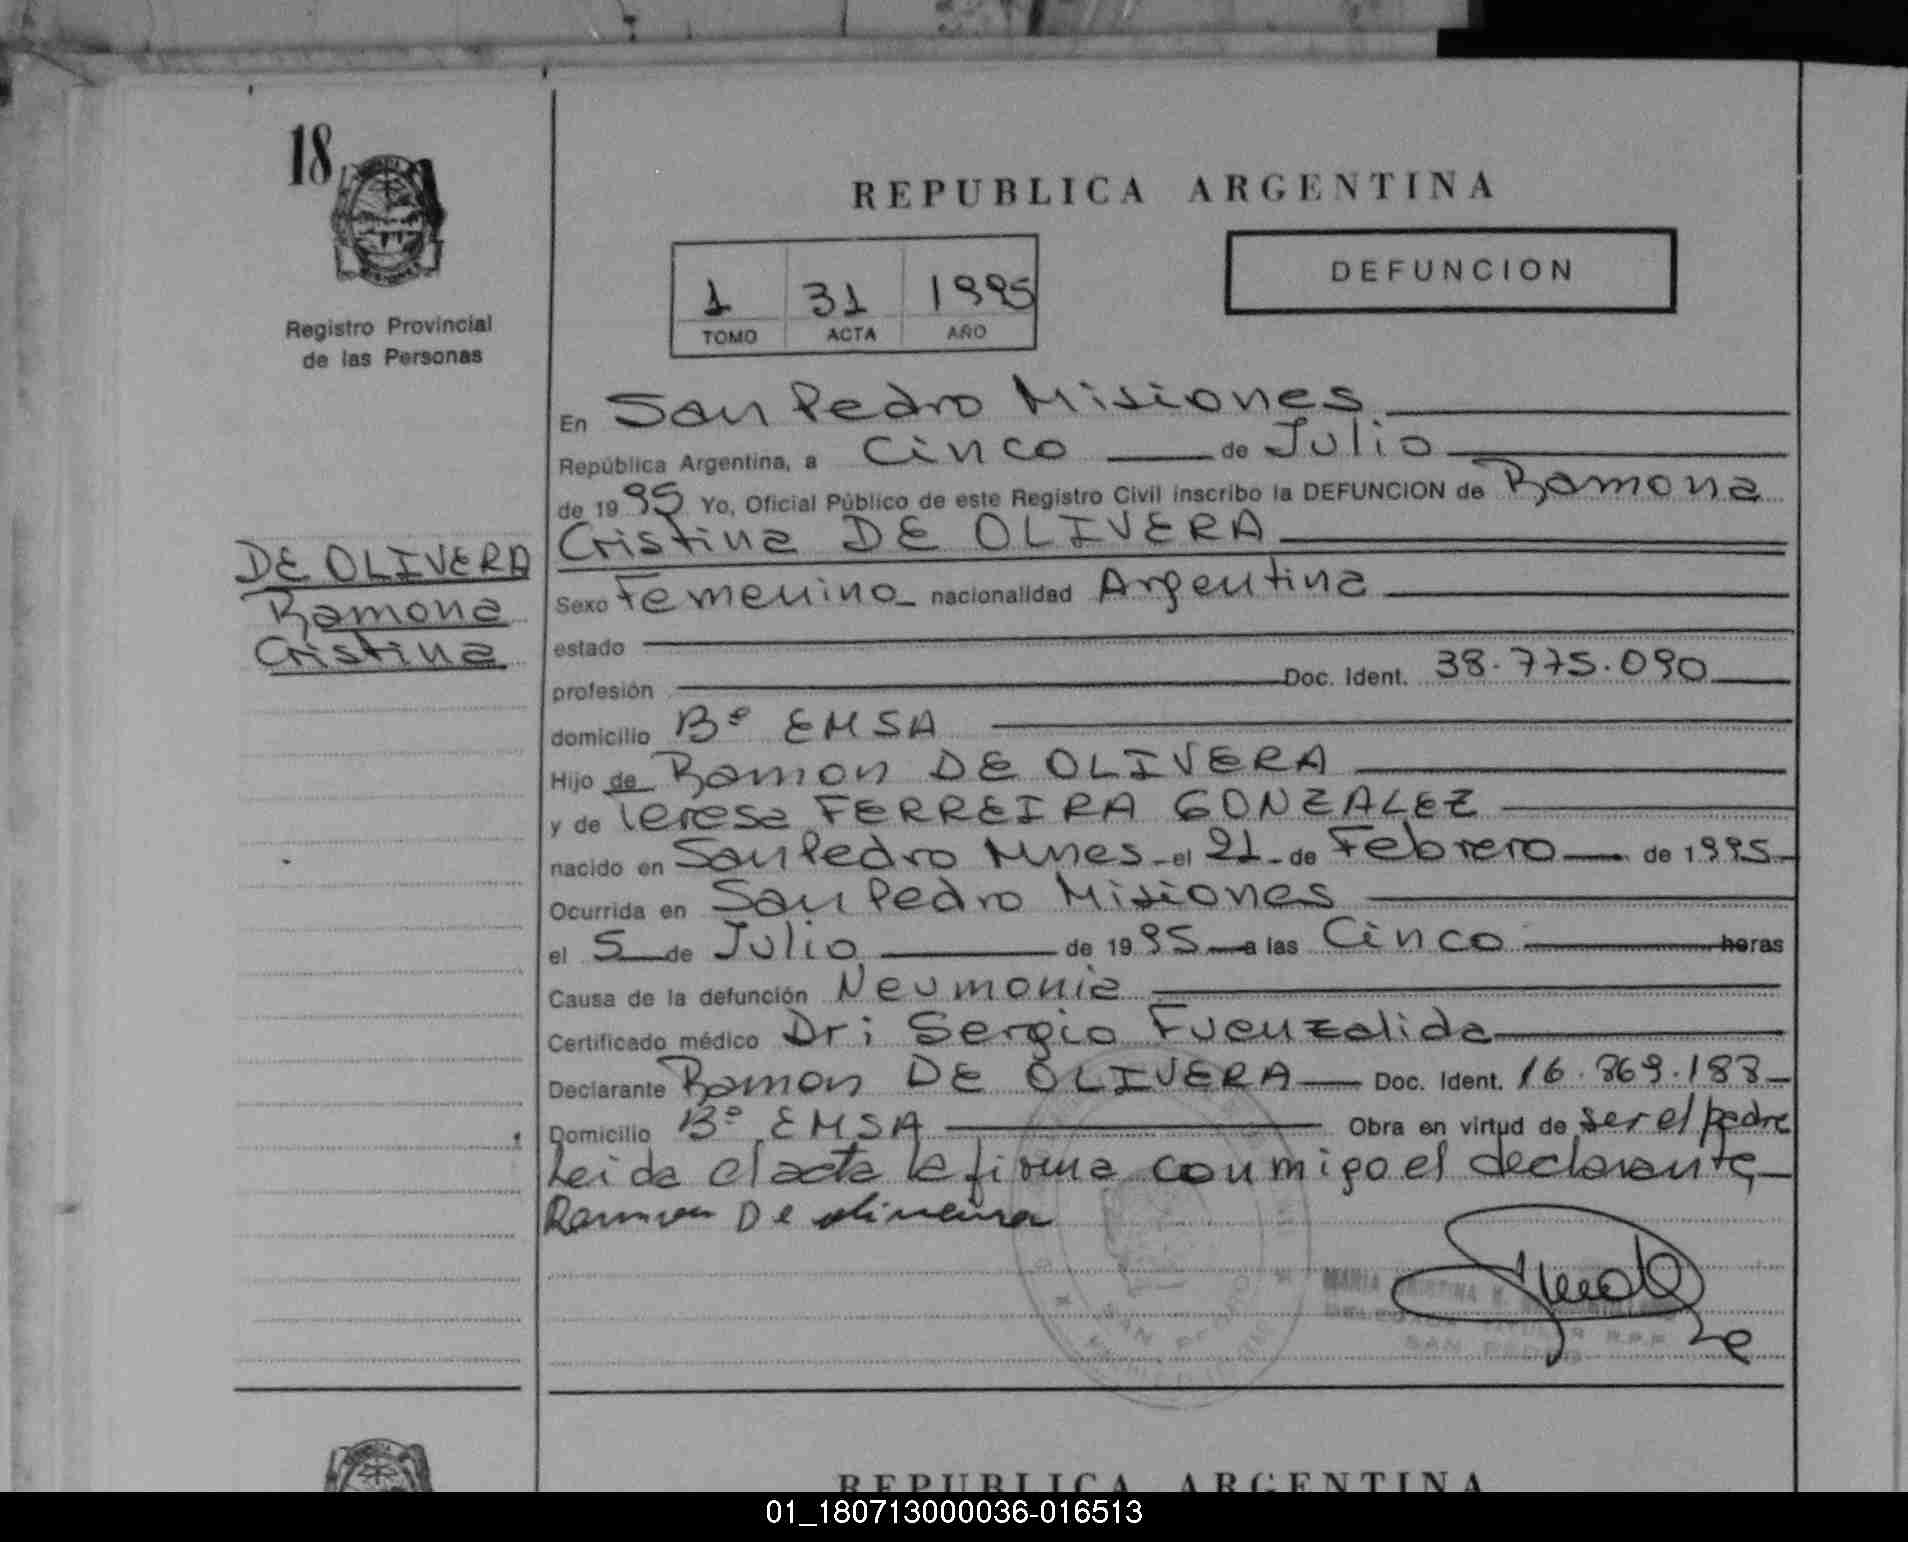 18
Registro Provincial
de las Personas
DE OLIVERA
Ramona
Cristina
REPUBLICA ARGENTINA
DEFUNCION
1 31 1995
TOMO ACTA AÑO
En San Pedro Misiones
República Argentina, a Cinco de Julio
de 1995 Yo, Oficial Público de este Registro Civil inscribo la DEFUNCION de Ramona
Cristina DE OLIVERA
Sexo Femenino nacionalidad Argentina
estado
profesión Doc. Ident. 38.775.090
domicilio Bº EMSA
Hijo de Ramon DE OLIVERA
y de Teresa FERREIRA GONZALEZ
nacido en San Pedro Mnes el 21 de Febrero de 1995
Ocurrida en San Pedro Misiones
el 5 de Julio de 1995 a las Cinco horas
Causa de la defunción Neumonia
Certificado médico Dr: Sergio Fuenzalida
Declarante Ramon DE OLIVERA Doc. Ident. 16.869.188
Domicilio Bº EMSA Obra en virtud de ser el padre
Leida el acta la firma conmigo el declarante
Ramon De oliveira
MARIA CRISTINA
TITULAR R.P.P.
SAN PEDRO
SAN PEDRO
REPUBLICA ARGENTINA
01_180713000036-016513